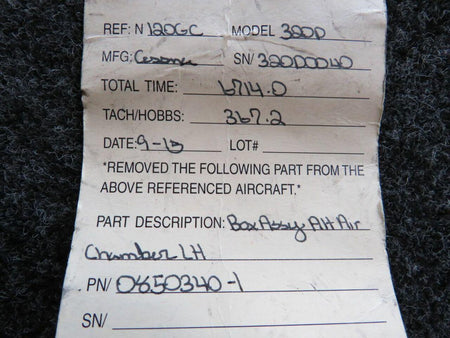 REF: N 120GC MODEL 320D
MFG: Cessna SN/ 320D0040
TOTAL TIME: 6714.0
TACH/HOBBS: 367.2
DATE: 9-13 LOT#
"REMOVED THE FOLLOWING PART FROM THE
ABOVE REFERENCED AIRCRAFT."
PART DESCRIPTION: Box Assy Alt Air
Chamber LH
PN/ 0850340-1
SN/